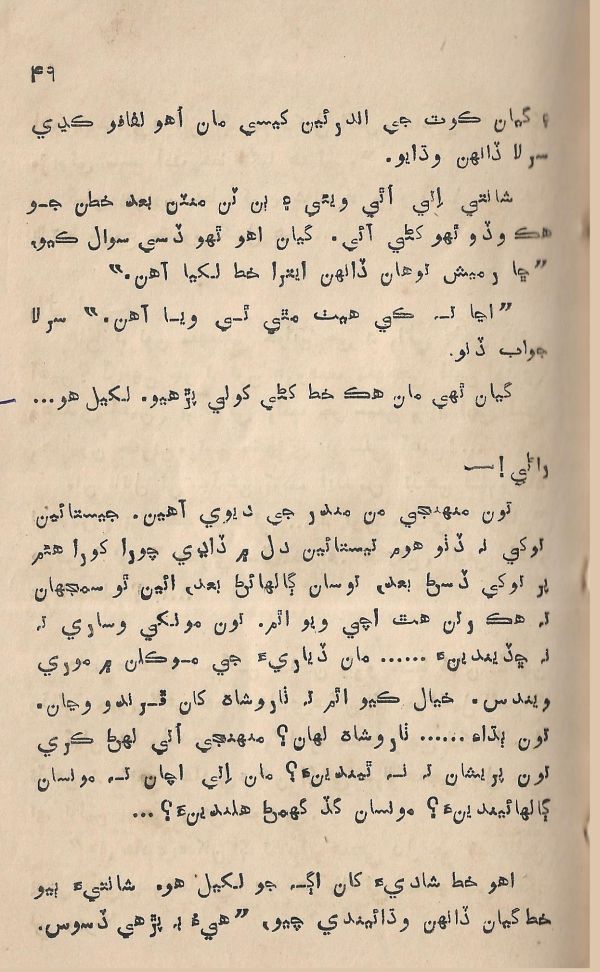 ۴۹
۽ گيان ڪوٽ جي اندرئين کيسي مان اهو لفافو ڪڍي
سرلا ڏانهن وڌايو.
شانتي اٿي اُٿي ويٺي ۽ ٻن ٽن منٽن بعد خطن جو
هڪ وڏو ٺهو کڻي آئي. گيان اهو ٺهو ڏسي سوال ڪيو،
”ڇا رميش توهان ڏانهن ايترا خط لکيا آهن.“
”اڃا تہ ڪي هيٺ مٿي ٿي ويا آهن.“ سرلا
جواب ڏنو.
گيان ٺهي مان هڪ خط کڻي کولي پڙهيو. لکيل هو...
راڻي !—
تون منهنجي من مندر جي ديوي آهين. جيستائين
توکي نہ ڏٺو هوم تيستائين دل ۾ ڏاڍي چورا کورا هئم
پر توکي ڏسڻ بعد، توسان ڳالهائڻ بعد، ائين ٿو سمجهان
تہ هڪ رتن هٿ اچي ويو اٿم. تون مونکي وساري تہ
نہ ڇڏيندينءَ ...... مان ڏياريءَ جي موڪلن ۾ موري
ويندس. خيال ڪيو اٿم تہ ٺاروشاهہ کان ڦرندو وڃان.
تون ٻڌاءِ ...... ٺاروشاهہ لهان؟ منهنجي اُتي لهڻ ڪري
تون پريشان تہ نہ ٿيندينءَ؟ مان اتي اچان تہ مونسان
ڳالهائيندينءَ؟ مونسان گڏ گهمڻ هلندينءَ؟ ...
اهو خط شاديءَ کان اڳہ جو لکيل هو. شانتيءَ ٻيو
خط گيان ڏانهن وڌائيندي چيو، ”هيءُ بہ پڙهي ڏسوس.